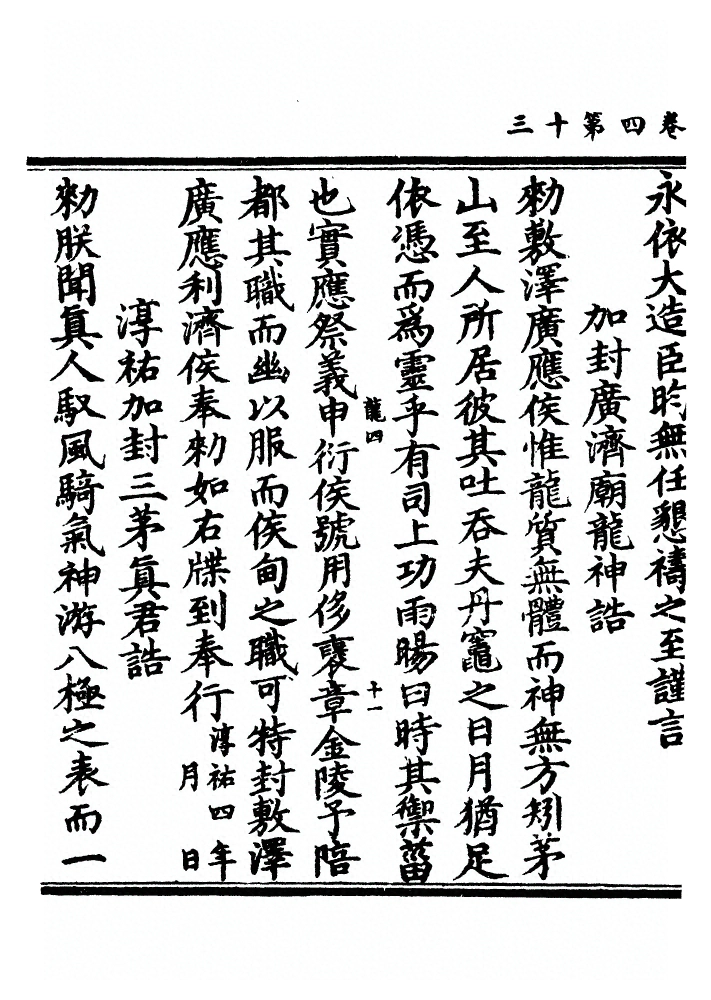 三十第四卷
永依大造臣昀無任懇禱之至謹言
加封廣濟廟龍神誥
勑敷澤廣應侯惟龍質無體而神無方矧茅
山至人所居彼其吐吞夫丹竈之日月猶足
依憑而為靈乎有司上功雨暘曰時其禦菑
龍四
十一
也實應祭義申衍侯號用侈褒章金陵予陪
都其職而幽以服而侯甸之職可特封敷澤
廣應利濟侯奉勑如右牒到奉行淳祐四年
月日
淳祐加封三茅眞君誥
勑朕聞眞人馭風騎氣神游八極之表而一